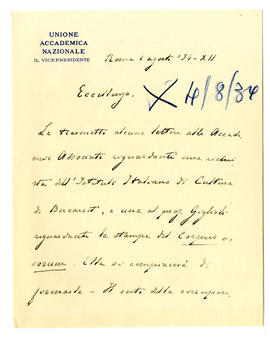 UNIONE
ACCADEMICA
NAZIONALE
IL VICEPRESIDENTE
Roma 1 agosto '34-XII
Eccellenza, X 4/8/34
Le trasmetto alcune lettere alle Accade
mie Associate riguardante una richie
sta dell'Istituto Italiano di Cultura
di Bucarest, e una al prof. Goglia
riguardante la stampa del Corpus
Ella si compiacerà di
firmarle - Il resto della